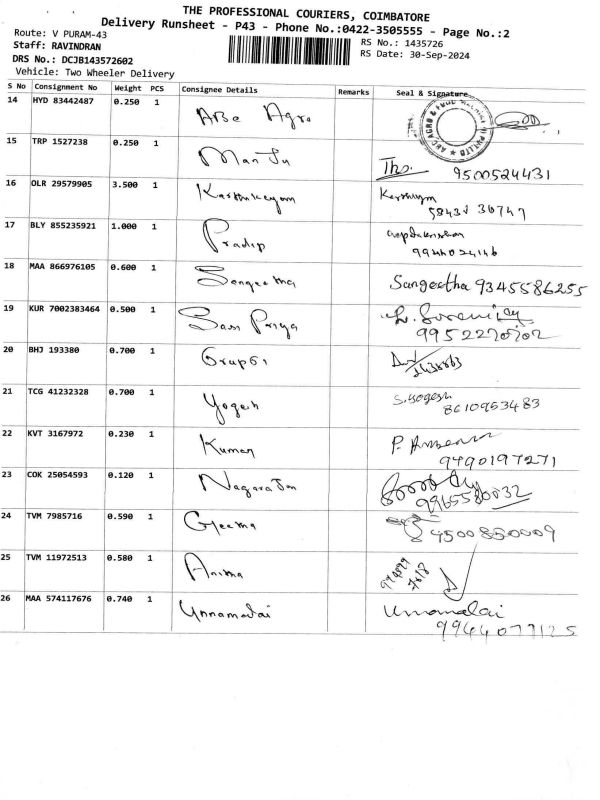 THE PROFESSIONAL COURIERS, COIMBATORE
Delivery Runsheet - P43 - Phone No.:0422-3505555 - Page No.:2
Route: V PURAM-43
Staff: RAVINDRAN
DRS No.: DCJB143572602
Vehicle: Two Wheeler Delivery
RS No.: 1435726
RS Date: 30-Sep-2024
S No Consignment No Weight PCS Consignee Details Remarks Seal & Signature
14 HYD 83442487 0.250 1 ABC Agro
15 TRP 1527238 0.250 1 Man Ju 9500524431
16 OLR 29579905 3.500 1 Karthikeyan
17 BLY 855235921 1.000 1 Pradip
18 MAA 866976105 0.600 1 Sangeetha Sangeetha 9345586255
19 KUR 7002383464 0.500 1 Sasi Priya
20 BHJ 193380 0.700 1
21 TCG 41232328 0.700 1 Yogesh S.yogesh
8610953483
22 KVT 3167972 0.230 1 Kumar
9790197271
23 COK 25054593 0.120 1 Nagarajan
9965580032
24 TVM 7985716 0.590 1 4500850009
25 TVM 11972513 0.580 1 Anima
26 MAA 574117676 0.740 1 Unnamalai Unnamalai
9944077125